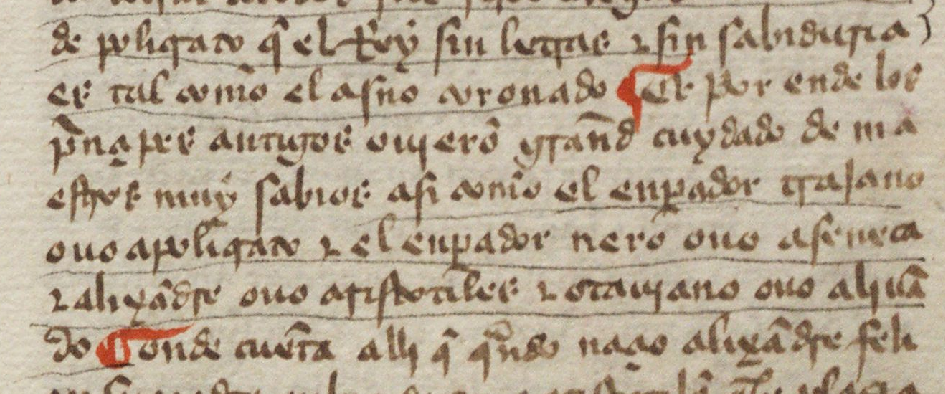 de poligato q̃ el Rey sin letras ⁊ sin sabiduria
es tal com̃o el asno coronado ¶ Et por ende los
p̃nçipes antigos ouierõ grãnd cuydado de ma
estros muy sabios asi com̃o el enp̃ador trajano
ouo apoligato ⁊ el enp̃ador nero ouo a seneca
⁊ alixãdre ouo aristotiles ⁊ otauiano ouo aliuã
do ¶ onde cuẽta alli q̃ qñdo naçio alixãdre feli